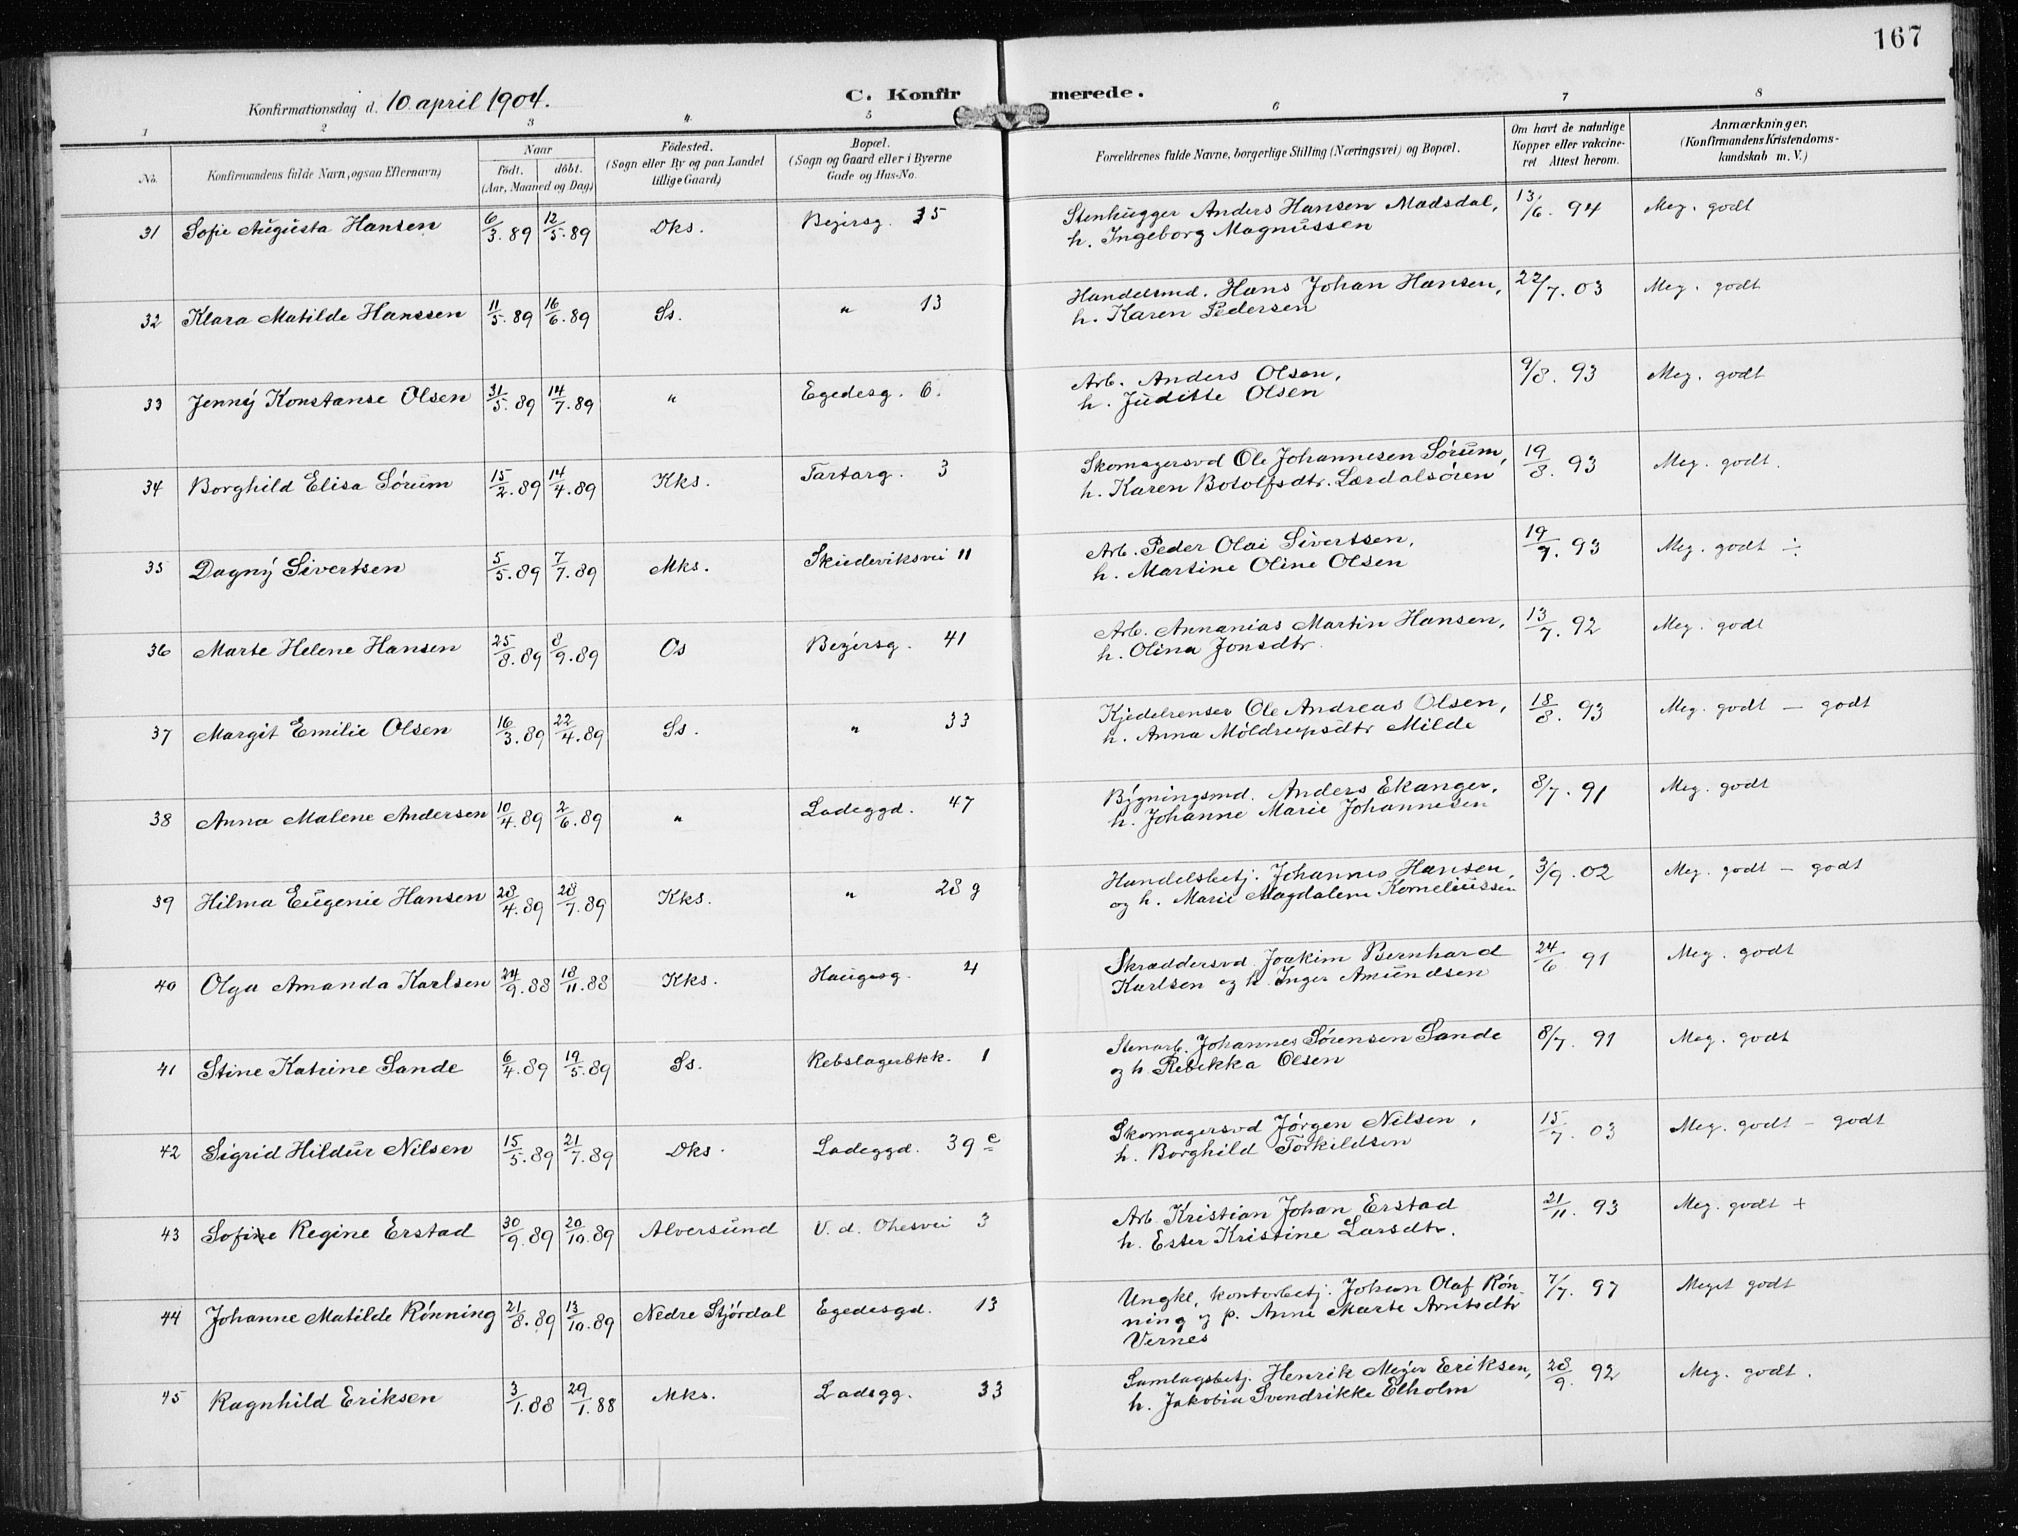 167
Konfirmationsdag d. 10. april 1904. C. Konfirmerede.
1 2 3 4 5 6 7 8
No. Konfirmandens fulde Navn, ogsaa Efternavn) Naar født. døbt. (Aar, Maaned og Dag) Fødested. (Sogn eller By og paa Landet tillige Gaard) Bopæl. (Sogn og Gaard eller i Byerne Gade og Hus-No. Forældrenes fulde Navne, borgerlige Stilling (Næringsvei) og Bopæl. Om havt de naturlige Kopper eller vakcineret Attest herom. Anmærkninger. (Konfirmandens Kristendomskundskab m. V.)
31 Sofie Augusta Hansen 6/3.89 12/5.89 Dks. Bejersg. 35 Stenhugger Anders Hansen Madsdal, 13/6. 94 Meg. godt
h. Ingeborg Magnussen
32 Klara Matilde Hanssen 11/5.89 16/6.89 Ss. " 13 Handelsmd. Hans Johan Hansen, 22/7.03 Meg. godt
h. Karen Pedersen
33 Jenny Konstanse Olsen 31/5.89 14/7.89 " Egedesg. 6. Arb. Anders Olsen, 9/8. 93 Meg. godt
h. Juditte Olsen
34 Borghild Elisa Sørum 15/2.89 14/4.89 Kks. Tartarg. 3 Skomagersvd Ole Johannesen Sørum, 19/8. 93 Meg. godt.
h. Karen Botolfsdtr. Lærdalsören
35 Dagny Sivertsen 5/5.89 7/7.89 Mks. Skudeviksvei 11 Arb. Peder Olai Sivertsen, 19/7. 93 Meg. godt ÷
h. Martine Oline Olsen
36 Marte Helene Hansen 25/8.89 8/9.89 Os Bejersg. 41 Arb. Annanias Martin Hansen, 13/7. 92 Meg. godt
h. Olina Jonsdtr.
37 Margit Emilie Olsen 16/3.89 22/4.89 Ss. " 33 Kjedelrenser Ole Andreas Olsen, 18/8. 93 Meg. godt — godt
h. Anna Möldrupsdtr Milde
38 Anna Malene Andersen 10/4.89 2/6.89 " Ladeggd. 47 Bygningsmd. Anders Ekanger, 8/7. 91 Meg. godt
h. Johanne Marie Johannesen
39 Hilma Eugenie Hansen 28/4.89 28/7.89 Kks. " 28 g Handelsbetj. Johannes Hansen, 3/9. 02 Meg. godt – godt
og h. Marie Magdalene Korneliussen
40 Olga Amanda Karlsen 24/9.88 18/11.88 Kks. Haugesg. 4 Skræddersvd. Joakim Bernhard 24/6 91 Meg. godt
Karlsen og h. Inger Amundsen
41 Stine Katrine Sande 6/4.89 19/5.89 Ss. Rebslagerbkk. 1 Stenarb. Johannes Sørensen Sande 8/7. 91 Meg. godt
og h. Rebekka Olsen
42 Sigrid Hildur Nilsen 15/5.89 21/7.89 Dks. Ladeggd. 39 e Skomagersvd Jørgen Nilsen, 15/7. 03 Meg. godt – godt
h. Borghild Torkildsen
43 Sofine Regine Erstad 30/9.89 20/10.89 Alversund V. d. Ohesvei 3 Arb. Kristian Johan Erstad 21/11. 93 Meg. godt +
h. Ester Kristine Larsdtr.
44 Johanne Matilde Rønning 21/8.89 13/10.89 Nedre Stjørdal Egedesgd. 13 Ungkl, kontorbetj. Johan Olaf Røn- 7/7. 97 Meget godt
ning og p. Anne Marte Arntsdtr
Vernes
45 Ragnhild Eriksen 3/1.88 29/1.88 Mks. Ladegg. 33 Samlagsbetj. Henrik Mejer Eriksen, 28/9. 92 Meg. godt.
h. Jakobia Svendrikke Elholm